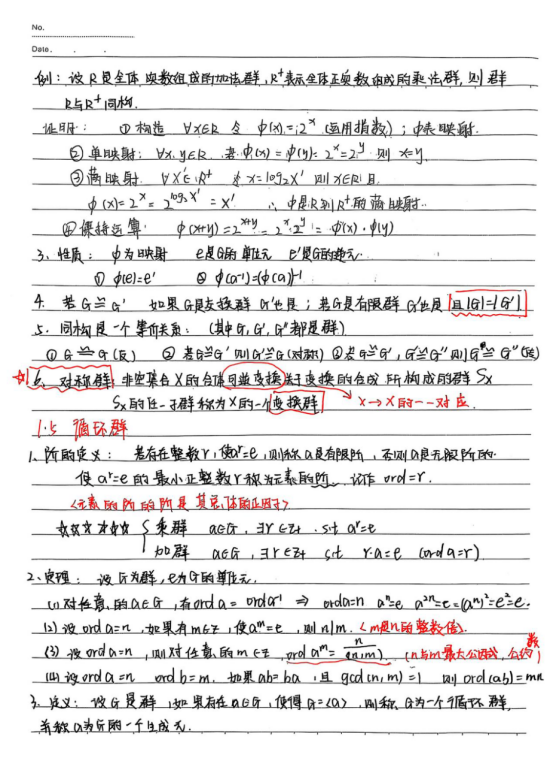 No.
Date. . .
例：设R是全体实数组成的加法群，R⁺表示全体正实数组成的乘法群，则群
R与R⁺同构.
证明： ① 构造 ∀x∈R 令 φ(x)=2ˣ (运用指数)；φ为映射.
② 单映射：∀x,y∈R 若φ(x)=φ(y)=2ˣ=2ʸ 则 x=y
③ 满映射 ∀x'∈R⁺ x=log₂x' 则x∈R且
φ(x)=2ˣ=2^{log₂x'}=x' ∴ φ是R到R⁺的满映射.
④ 保持运算 φ(x+y)=2^{x+y}=2ˣ·2ʸ=φ(x)·φ(y)
3、性质： φ为映射 e是G的单位元 e'是G的单位元
① φ(e)=e' ② φ(a⁻¹)=φ(a)⁻¹
4. 若G≅G' 如果G是交换群 G'也是；若G是有限群 G'也是 且|G|=|G'|
5. 同构是一个等价关系：(其中G,G',G"都是群)
① G≅G(反) ② 若G≅G' 则G'≅G(对称) ③ 若G≅G', G'≅G" 则G≅G"(传)
☆ 6、对称群：非空集合X的全体可逆变换关于变换的合成所构成的群 Sx
Sx的任一子群称为X的一个变换群 → X→X的一一对应
1.5 循环群
1、阶的定义：若存在整数r,使aʳ=e,则称a是有限阶，否则a是无限阶的.
使aʳ=e的最小正整数r称为元素的阶 记作 ord=r.
<元素的阶的阶是其总体的正因子>
☆☆☆☆☆☆ { 乘群 a∈G, ∃r∈Z₊ . s.t aʳ=e
加群 a∈G, ∃r∈Z₊ s.t r·a=e (ord a=r)
2、定理： 设G为群，e为G的单位元.
(1) 对任意的a∈G,有ord a = ord a⁻¹ ⇒ ord a=n aⁿ=e, a²ⁿ=e=(aⁿ)²=e²=e.
(2) 设 ord a=n ,如果有m∈Z,使aᵐ=e,则n|m. <m是n的整数倍>.
(3) 设ord a=n ,则对任意的m∈Z, ord aᵐ=n/(n,m). (n与m最大公因数,公约数)
(4) 设ord a=n ord b=m. 如果ab=ba ,且 gcd(n,m)=1 则 ord(ab)=mn
3. 定义：设G是群，如果存在a∈G, 使得G=<a> ,则称G为一个循环群,
并称a为G的一个生成元.